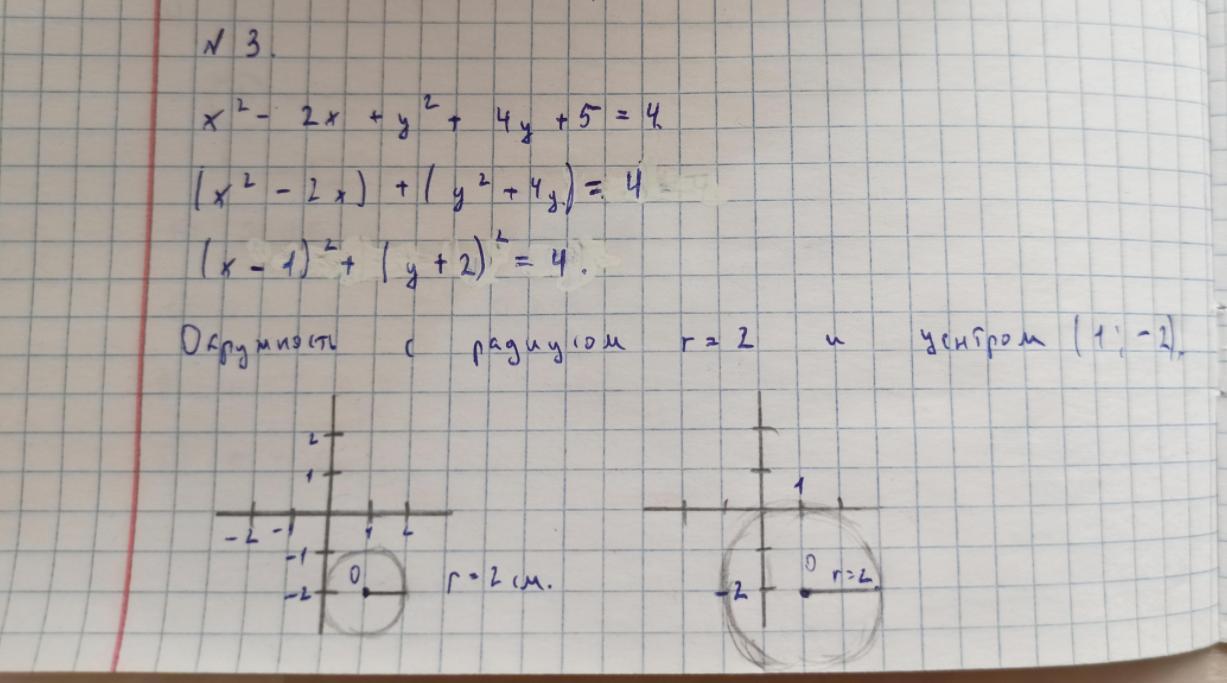 N 3.
x² - 2x + y² + 4y + 5 = 4
(x² - 2x) + (y² + 4y) = 4
(x - 1)² + (y + 2)² = 4.
Окружность с радиусом r = 2 и центром (1; -2).
2
1
-2 -1 1 2
-1
-2
O
r = 2 см.
1
-2
O
r=2